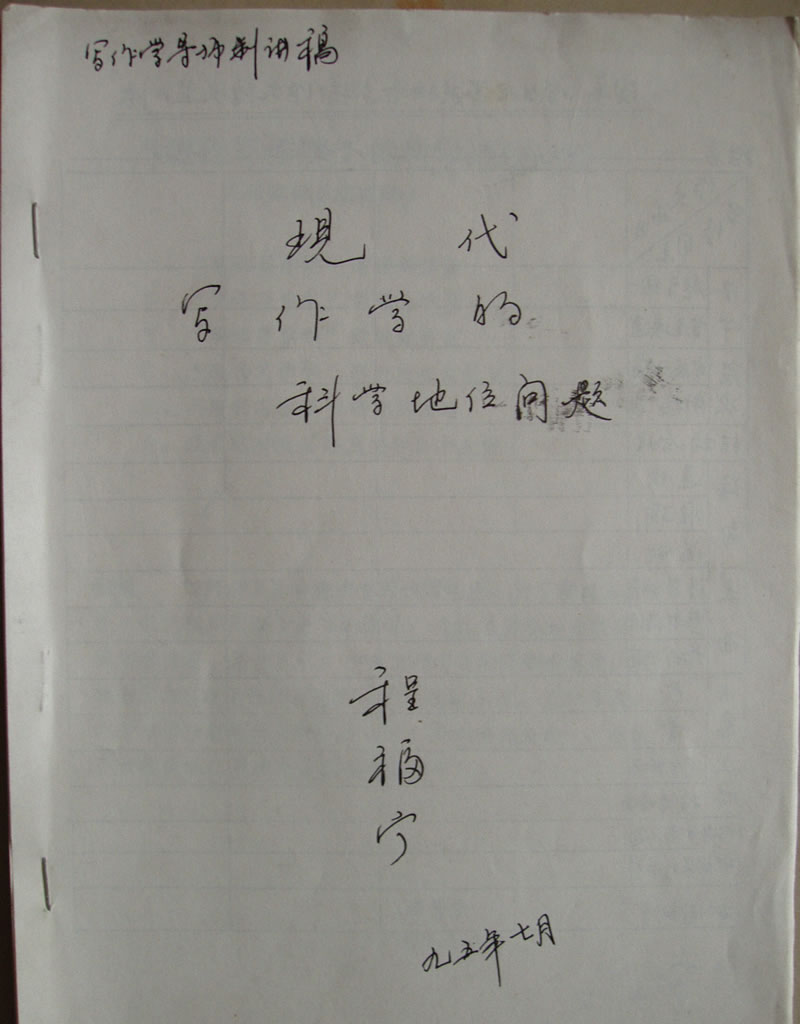 写作学导师制讲稿
現代
写作学的
科学地位问题
程
福
宁
九五年七月